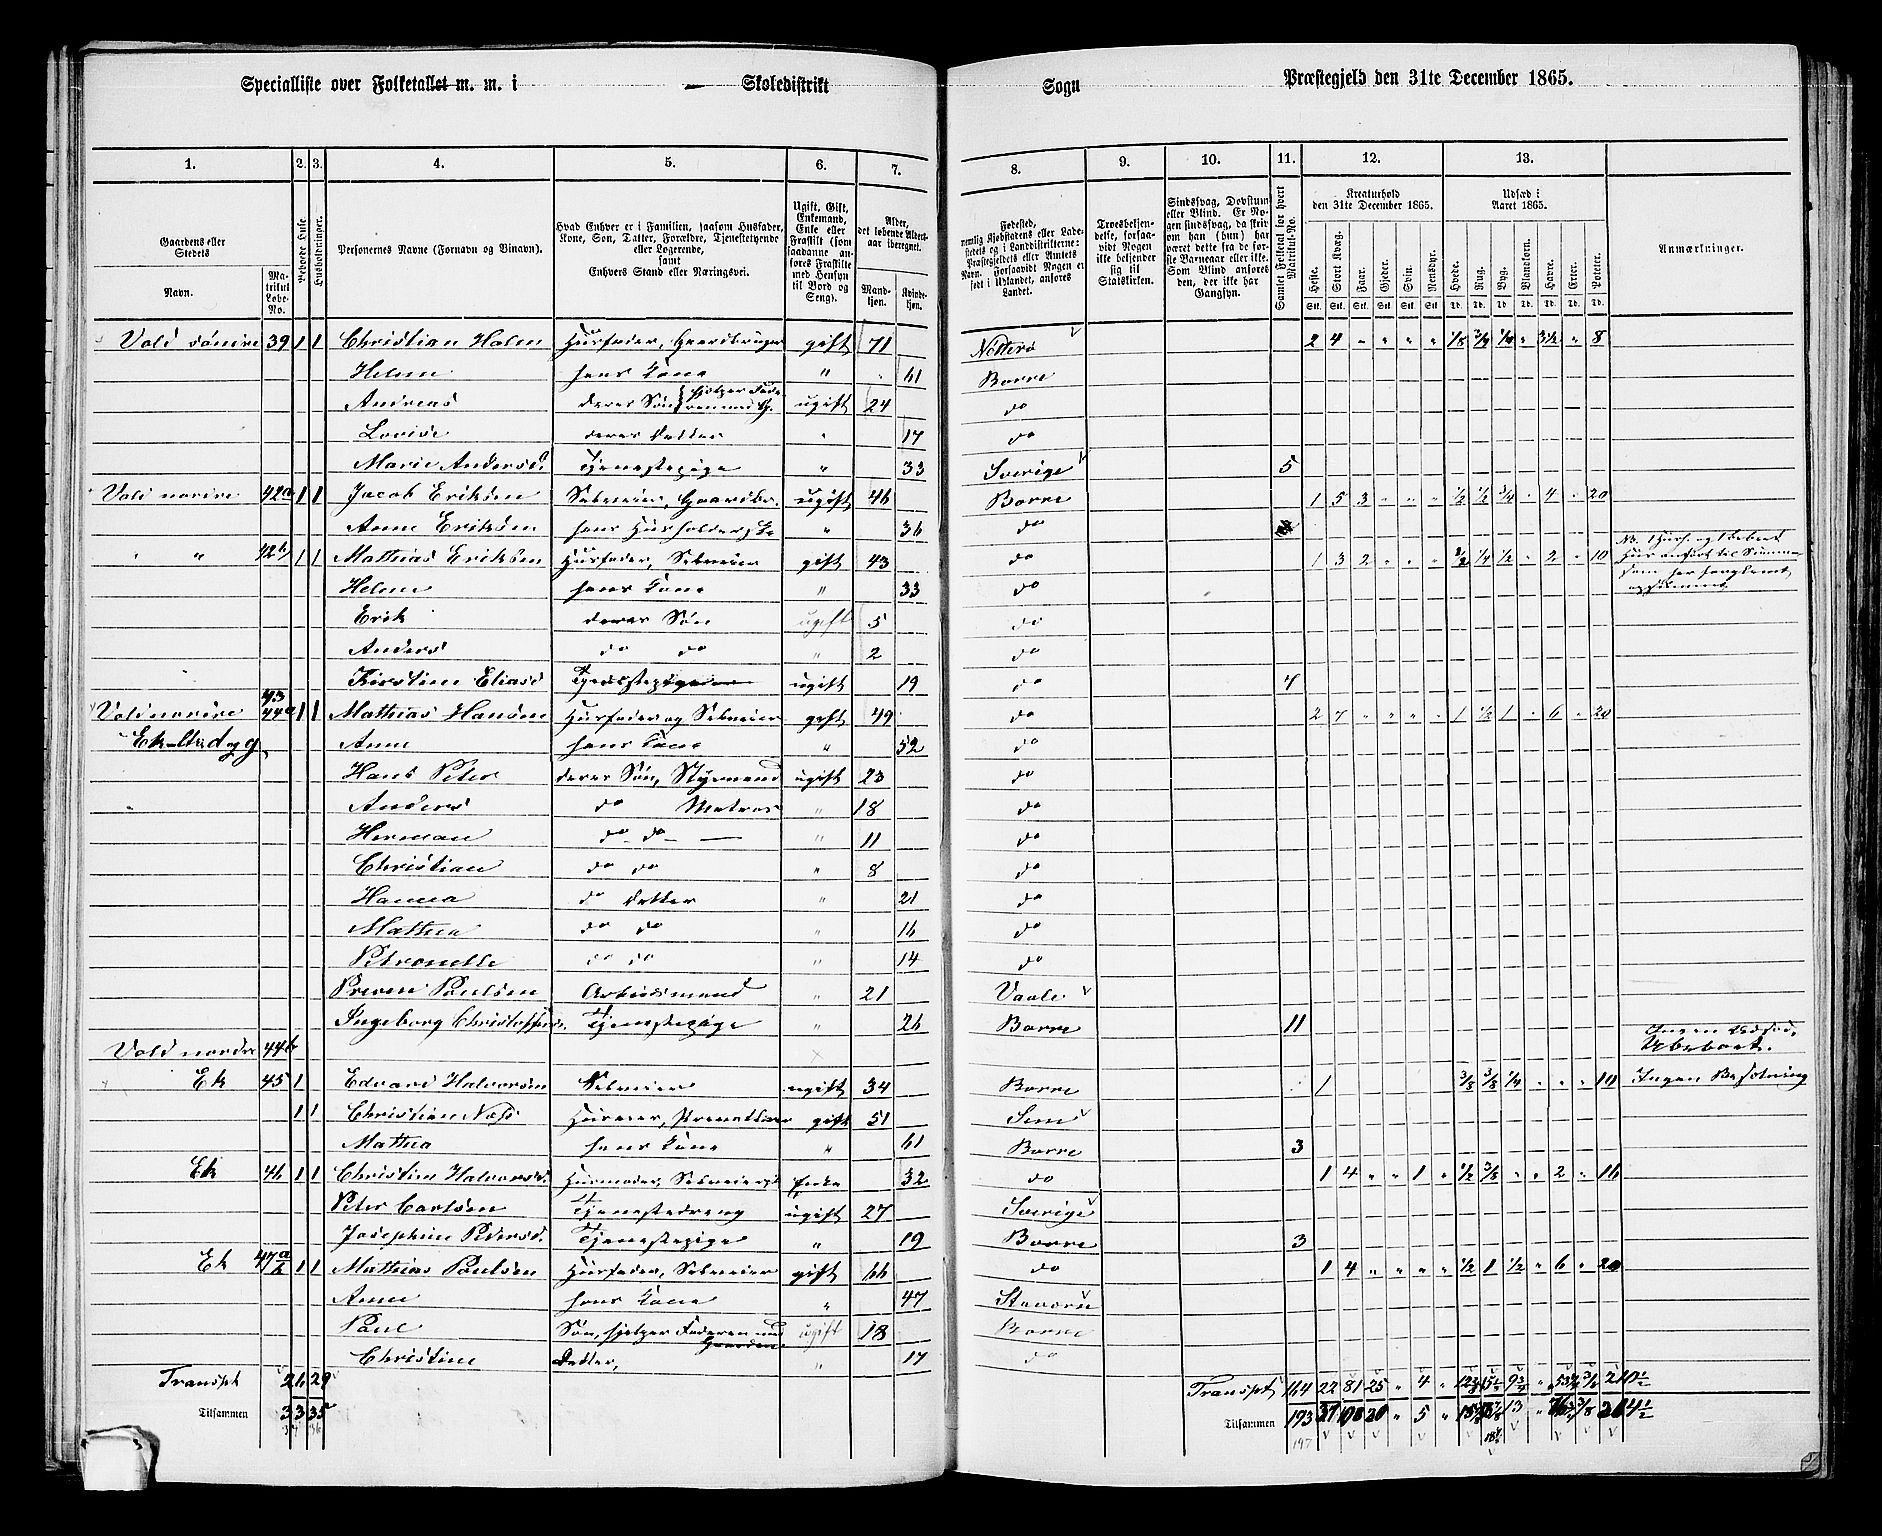 Specialliste over Folketallet m. m. i — Skoledistrikt Sogn Præstegjeld den 31te December 1865.
1. 2. 3. 4. 5. 6. 7. 8. 9. 10. 11. 12. 13.
Gaardens eller Stedets Navn. Matrikul Løbe-No. Beboede Huse. Husholdninger. Personernes Navne (Fornavn og Binavn). Hvad Enhver er i Familien, saasom Husfader, Kone, Søn, Datter, Forældre, Tjenestetyende eller Logerende, samt Enhvers Stand eller Næringsvei. Ugift, Gift, Enkemand, Enke eller Fraskilt (som saadanne anføres Fraskilte med Hensyn til Bord og Seng). Alder, det løbende Aldersaar iberegnet. Mandkjøn. Kvindekjøn.
Fødested, nemlig Kjøbstadens eller Ladestedets og i Landdistrikterne: Præstegjeldets eller Amtets Navn. Forsaavidt Nogen er født i Udlandet, anføres Landet. Troesbekjendelse, forsaavidt Nogen ikke bekjender sig til Statskirken. Sindssvag, Døvstum eller Blind. Er Nogen sindssvag, da skrives om han (hun) har været dette fra de første Barneaar eller ikke. Som Blind anføres den, der ikke har Gangsyn. Samlet Folketal for hvert Matrikul-No. Kreaturhold den 31te December 1865. Udsæd i Aaret 1865. Anmærkninger.
Heste. Stort Kvæg. Faar. Gjeder. Svin. Rensdyr. Hvede. Rug. Byg. Blandkorn. Havre. Erter. Poteter.
Stk. Stk. Stk. Stk. Stk. Stk. Td. Td. Td. Td. Td. Td. Td.
Vold søndre 39 1 1 Christian Holm Husfader, Gaardbruger gift 71 Nøtterø 2 4 " " " " 1/8 3/4 1/4 " 3 1/2 " 8
Helene hans Kone " 61 Borre
Andreas deres Søn hjelper Faderen med G. ugift 24 do
Lovise deres Datter " 17 do
Marie Andersd. Tjenestepige " 33 Sverige 5
Vold nordre 42a 1 1 Jacob Eriksen Selveier, Gaardbr. ugift 46 Borre 1 5 3 " " " 1/2 1/2 3/4 " 4 " 20
Anne Eriksen hans Husholderske " 36 do
" " 42b 1 1 Mathias Eriksen Husfader, Selveier gift 43 do 1 3 2 " " " 1/4 1/2 " 2 " 10
Helene hans Kone " 33 do
Erik deres Søn ugift 5 do
Anders do do " 2 do
Kirstine Eliasd Tjenestepige ugift 19 do 4
Vold nordre 43 44a 1 1 Mathias Hansen Husfader og Selveier gift 49 do 2 7 " " " " 1 1/2 1 " 6 " 20
Anne hans Kone " 52 do
Hans Peter deres Søn, Styrmand ugift 23 do
Anders do Matros " 18 do
Herman do do — " 11 do
Christian do do " 8 do
Hanna do Datter " 21 do
Mathea do do " 16 do
Petronelle do do " 14 do
Paulsen Arbeidsmand " 21 Vaale
Ingeborg Christophersd. Tjenestepige " 26 Borre 11
Vold nordre 44b × Ingen Udsæd, Ubeboet.
Ek 45 1 Edvard Halvorsen Selveier ugift 34 Borre 1 3/8 3/8 1/4 " " " 10 Ingen Besætning
1 1 Christian Næss Huseier, gift 51 Sem
Mathea hans Kone " 61 Borre 3
Ek 46 1 1 Christine Halvorsd. Husmoder, Selveier Enke 32 do 1 4 " " 1 " 1/2 3/8 " " 2 " 16
Peter Carlsen Tjenestedreng ugift 27 Sverige
Josephine Pedersd. Tjenestepige " 19 Borre 3
Ek 47 a b 1 1 Mathias Paulsen Husfader, Selveier gift 66 do 1 4 " " " " 1/2 1 1/2 " 6 " 20
Anne hans Kone " 47 Stavern
Paul Søn, hjelper Faderen med Gaarden ugift 18 Borre
Christine Datter, " 17 do
Transpt 26 29 Transpt 164 22 81 25 " 4 "
Tilsammen 33 35 Tilsammen 193 " 5 " 13
197